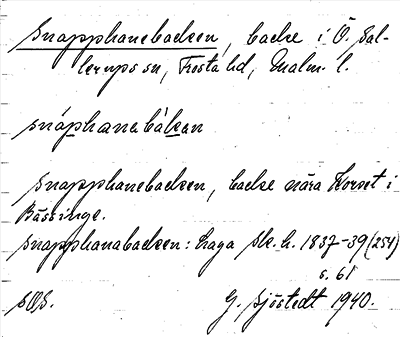 Snapphanebacken, backe i Ö. Sal-
lerups sn, Frosta hd, Malm. l.
snáphanabàkan
Snapphanebacken, backe nära Korset i
Bässinge.
Snapphanabacken: Laga Sk. h. 1837-39 (254)
s. 61
SOS. G. Sjöstedt 1940.